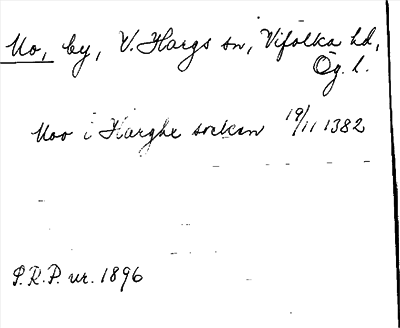 Mo, by, V. Hargs sn, Vifolka hd,
Ög. l.
Moo i Harghe sockn 19/11 1382
S.R.P. nr. 1896